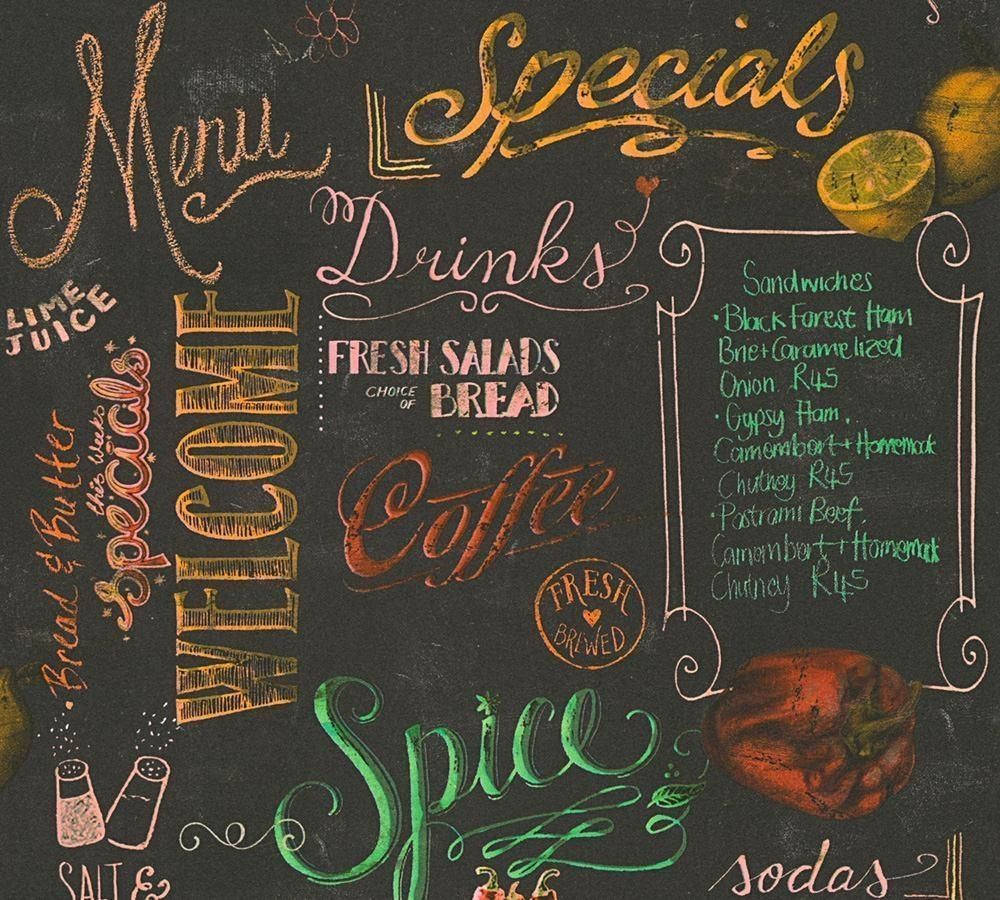 Menu
Specials
Drinks
LIME
JUICE
WELCOME
this weeks
Specials
Bread & Butter
FRESH SALADS
CHOICE
OF
BREAD
Coffee
FRESH
BREWED
Sandwiches
• Black Forest Ham
Brie + Caramelized
Onion R45
• Gypsy Ham.
Camombort + Homemade
Chutney R45
• Pastrami Beef.
Camombort + Homemade
Chutney R45
Spice
SALT &
sodas